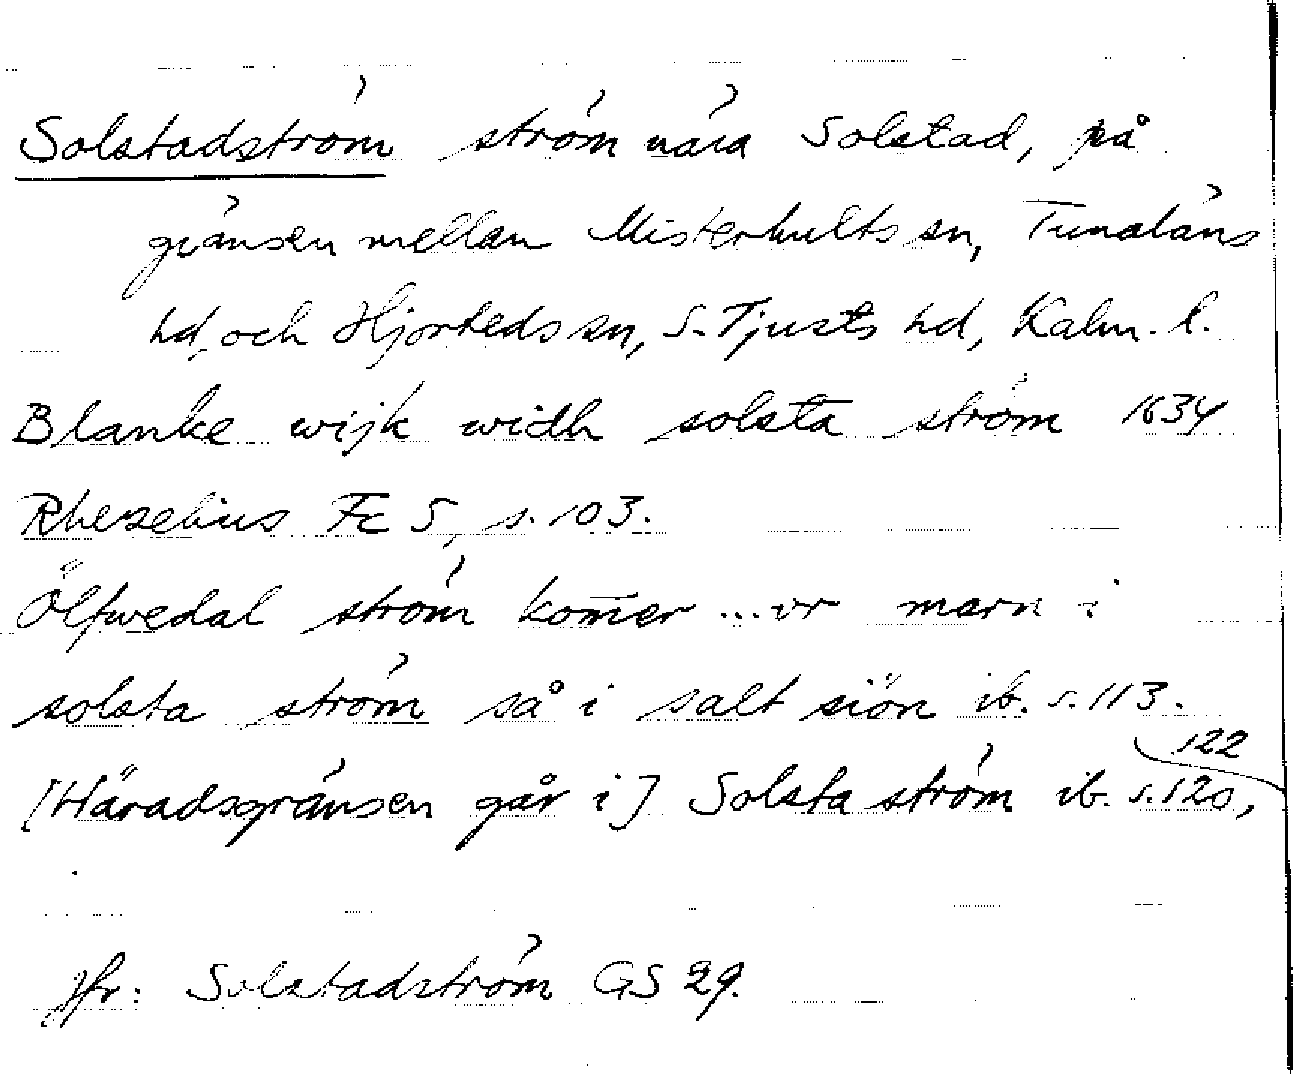 Solstadström ström nära Solstad, på
gränsen mellan Misterhults sn, Tunaläns
hd, och Hjorteds sn, S. Tjusts hd, Kalm. l.
Blanke wijk widh solsta ström 1634
Rhezelius Fc 5, s. 103.
Ölfwedal ström kom̄er ... vr marn i
solsta ström så i salt siön ib. s. 113.
[Häradsgränsen går i] Solsta ström ib. s. 120,
122
jfr: Solstadström GS 29.